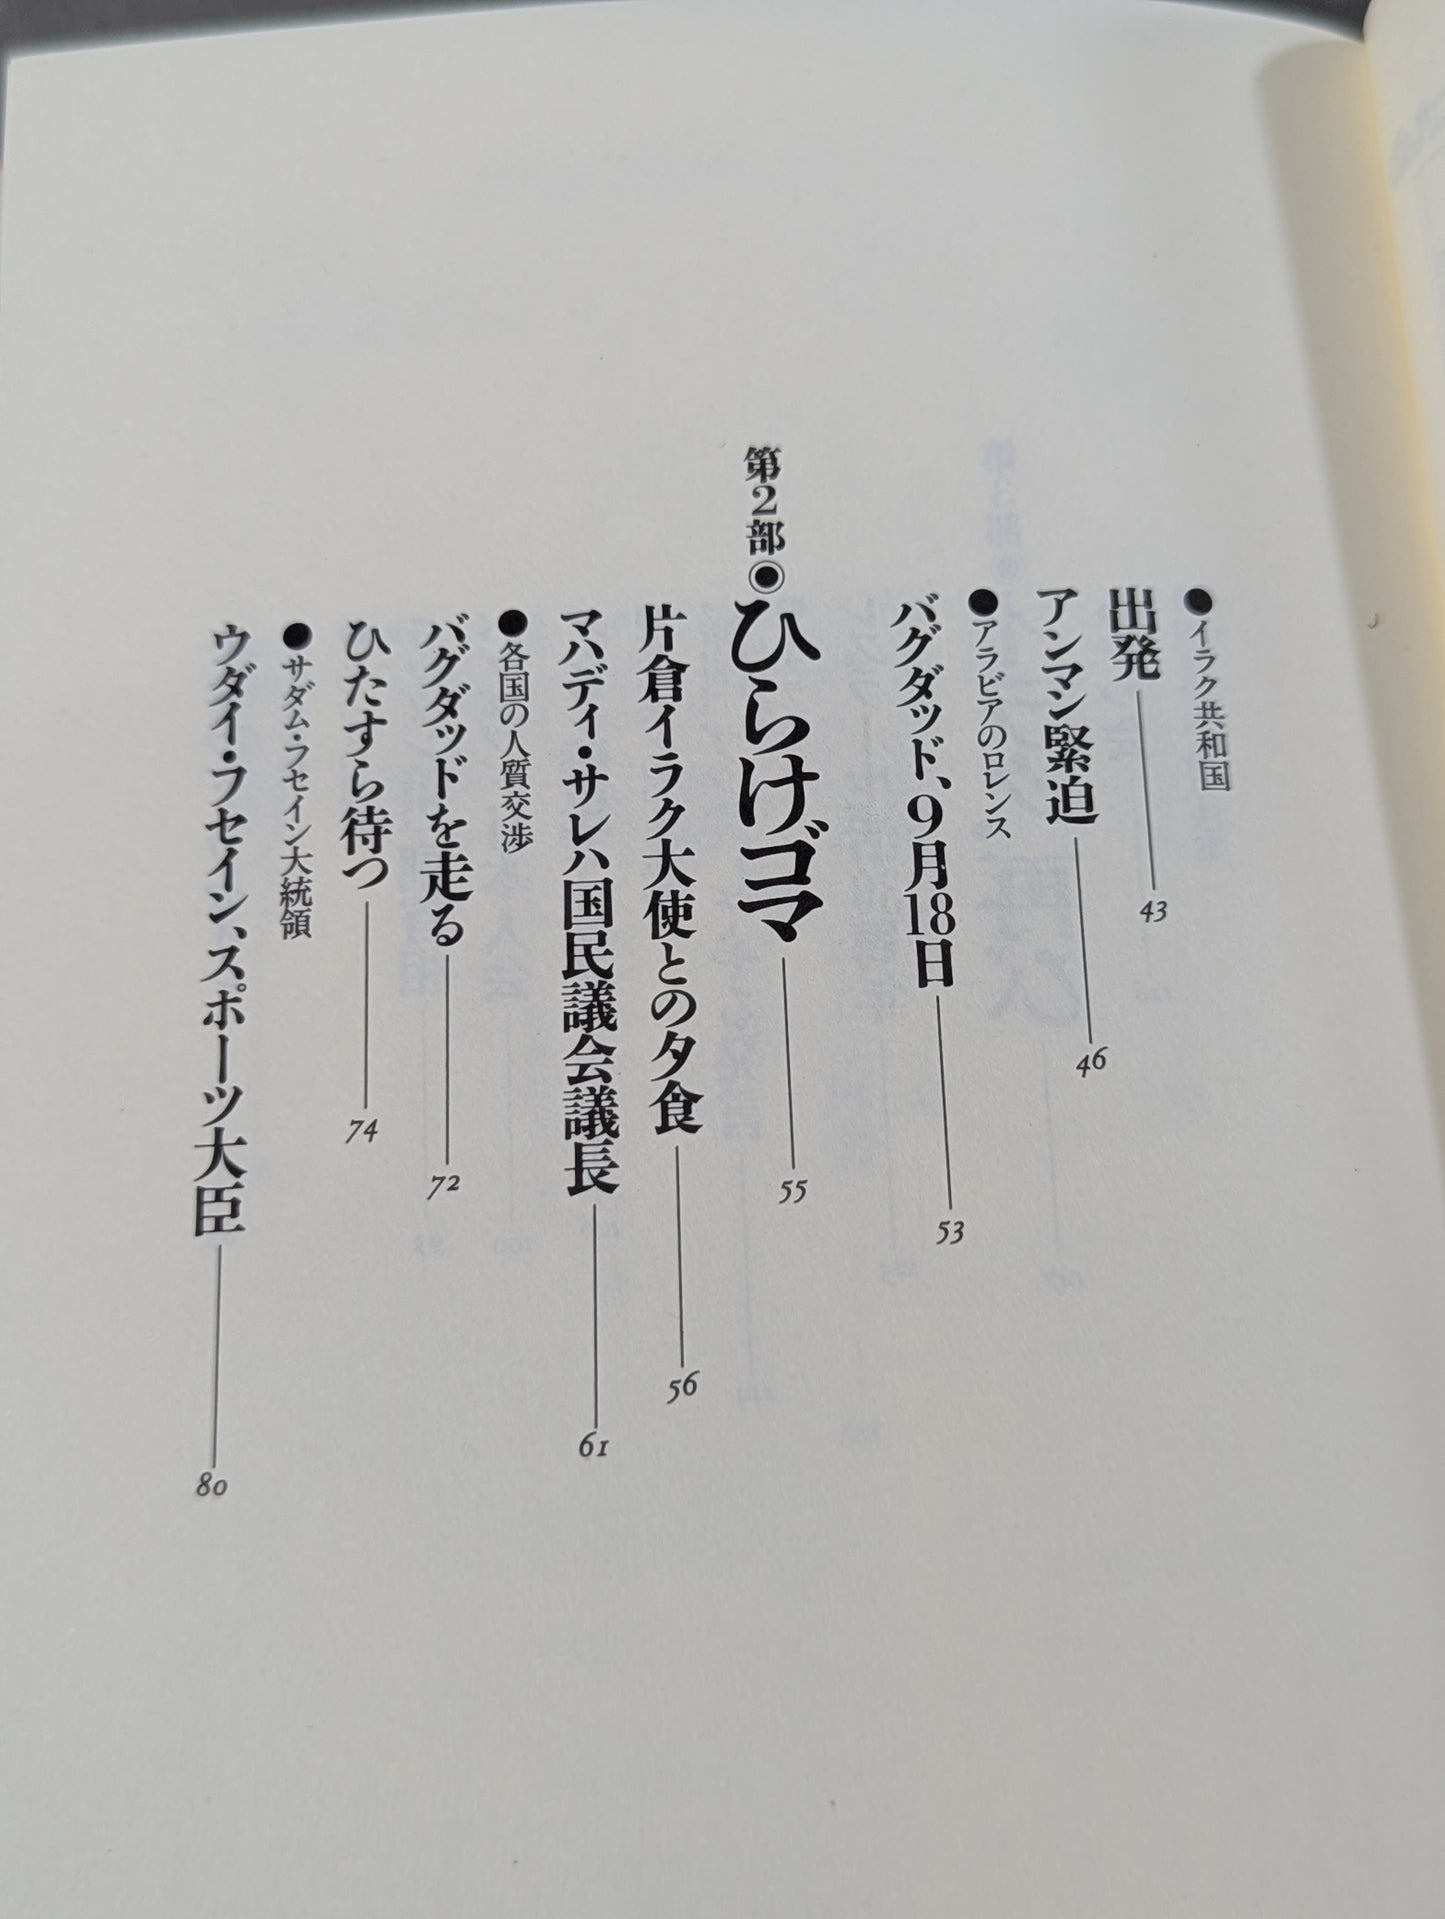 ●イラク共和国
出発 43
アンマン緊迫 46
●アラビアのロレンス
バグダッド、9月18日 53
第2部◉ひらけゴマ 55
片倉イラク大使との夕食 56
マハディ・サレハ国民議会議長 61
●各国の人質交渉
バグダッドを走る 72
ひたすら待つ 74
●サダム・フセイン大統領
ウダイ・フセイン、スポーツ大臣 80